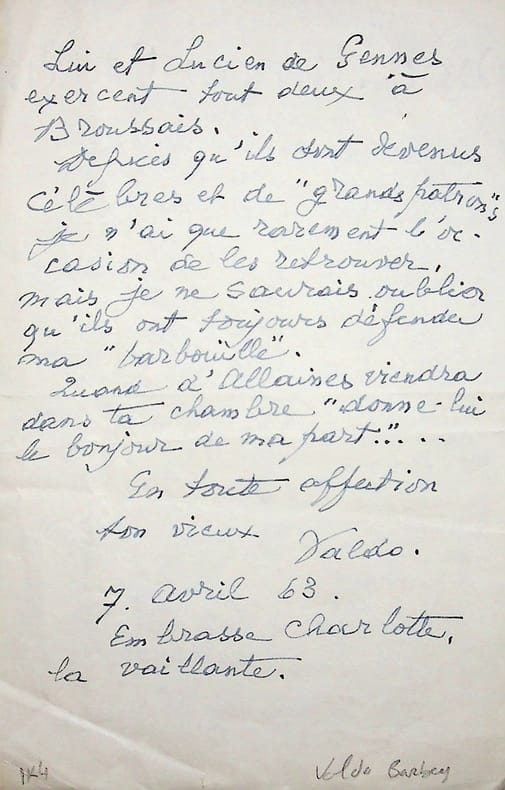 Lui et Lucien de Gennes
exercent tout deux à
Broussais.
Depuis qu'ils sont devenus
célèbres et de "grands patrons"
je n'ai que rarement l'oc-
casion de les retrouver,
mais je ne saurais oublier
qu'ils ont toujours défendu
ma "barbouille".
Quand d'Allaines viendra
dans ta chambre "donne-lui
le bonjour de ma part."....
En toute affection
ton vieux Valdo.
7. avril 63.
Embrasse Charlotte,
la vaillante.
Valdo Barbey